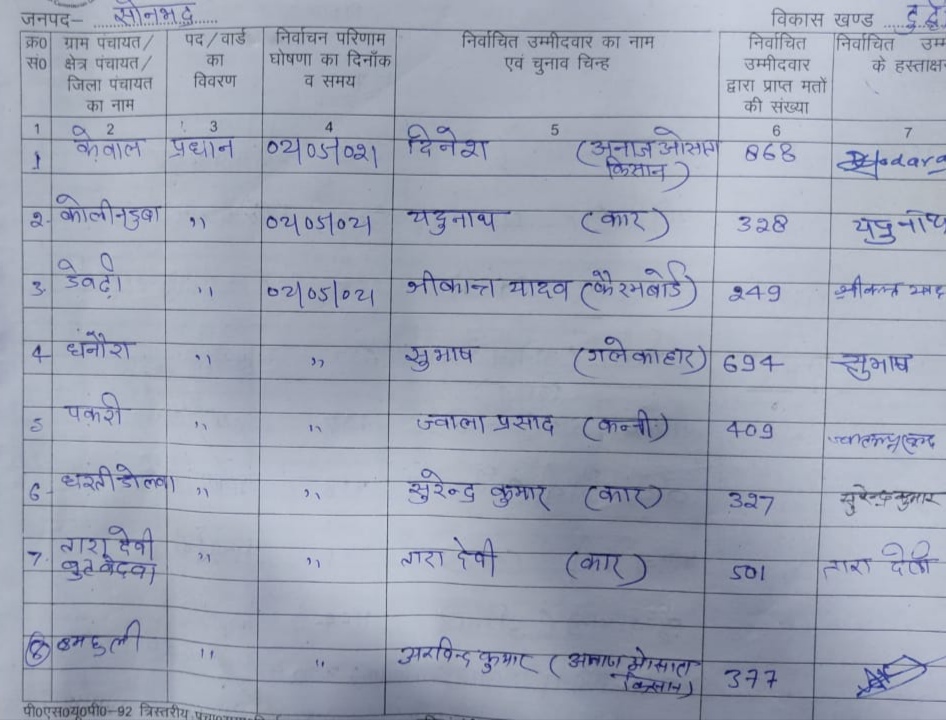 जनपद- सोनभद्र विकास खण्ड
क्र०सं० ग्राम पंचायत/क्षेत्र पंचायत/जिला पंचायत का नाम पद/वार्ड का विवरण निर्वाचन परिणाम घोषणा का दिनॉक व समय निर्वाचित उम्मीदवार का नाम एवं चुनाव चिन्ह निर्वाचित उम्मीदवार द्वारा प्राप्त मतों की संख्या निर्वाचित के
1 2 3 4 5 6 7
1 केवाल प्रधान 02/05/021 दिनेश (अनाज ओसाता किसान) 868
2. कोलीनडुबा ,, 02/05/021 यदुनाथ (कार) 328
3. डेवढ़ी ,, 02/05/021 श्रीकान्त यादव (कैरमबोर्ड) 249
4 धनौरा ,, ,, सुभाष (गले का हार) 694 सुभाष
5 पकरी ,, ,, ज्वाला प्रसाद (कन्नी) 409
6 धरतीडोलवा ,, ,, सुरेन्द्र कुमार (कार) 327 सुरेन्द्र कुमार
7. तारा देवी ,, ,, तारा देवी (कार) 501 तारा देवी
8 ,, ,, अरविन्द कुमार (अनाज ओसाता किसान) 377
पी०एस०यू०पी०-92 त्रिस्तरीय